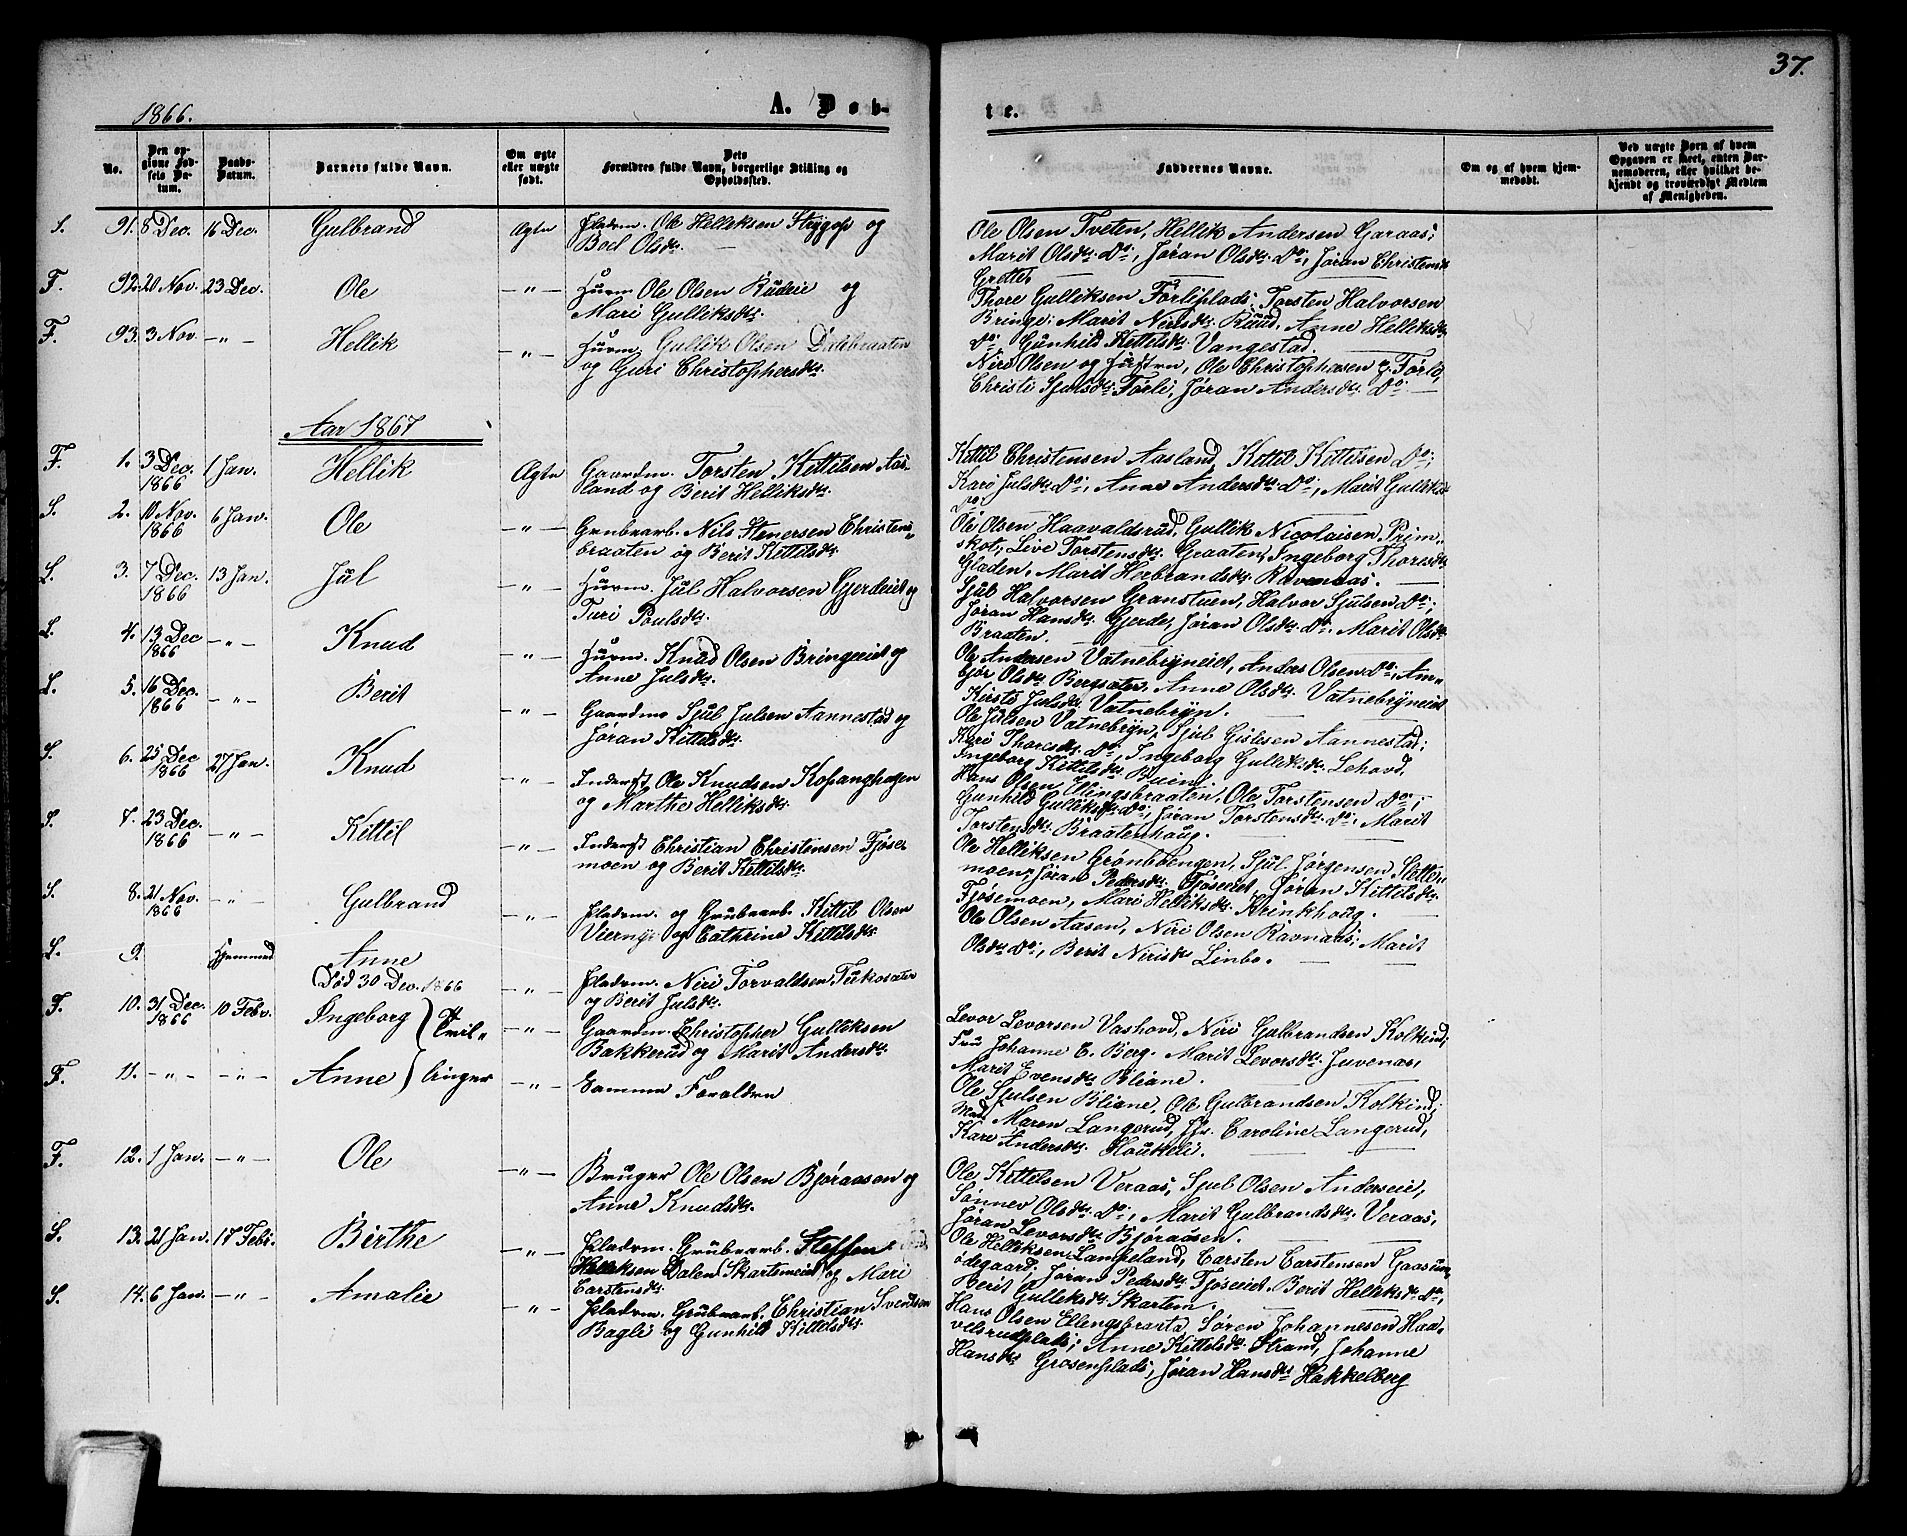 37.
1866.
A. Døb-
te.
No.
Den opgivne Fødsels Datum.
Daabs-Datum.
Barnets fulde Navn.
Om ægte eller uægte født.
Dets Forældres fulde Navn, borgerlige Stilling og Opholdssted.
Faddernes Navne.
Om og af hvem hjemmedøbt.
Ved uægte Børn af hvem Opgaven er skeet, enten Barnemoderen, eller hvilket bekjendt og troværdigt Medlem af Menigheden.
S. 91. 8 Dec. 16 Dec. Gulbrand Ægte Pladsm. Ole Helliksen Stegop og
Bod Olsdtr.
Ole Olsen Tveten, Hellik Andersen Garaas;
Marit Olsdtr. Do, Jøran Olsdtr. Do; Jøran Christensdtr
Grette
F. 92. 20 Nov. 23 Dec. Ole — " — Huusm. Ole Olsen Rudeie og
Mari Gulliksdtr.
Thore Gulliksen Førliplads; Torsten Halvorsen
Bringe; Marit Nirisdtr. Ruud, Anne Helliksdtr
Do Gunhild Kittelsdtr. Vangestad.
F. 93. 3 Nov. — " — Hellik — " — Huusm. Gullik Olsen Dalsbraaten
og Guri Christophersdtr.
Niri Olsen og Hustru, Ole Christophersen Førli,
Christi Sjulsdtr. Førli, Jøran Andersdtr. Do
Aar 1867
F. 1. 3 Dec. 1866 1 Jan. Hellik Ægte Gaardm. Torsten Kittelsen Aas-
land og Berit Helliksdtr.
Kittel Christensen Aasland, Kittel Kittelsen Do;
Kari Julsdtr. Do; Anne Andersdtr. Do, Marit Gulliksdtr
Do
S. 2. 10 Nov. 1866 6 Jan. Ole — " — Grubearb. Nils Stenersen Christens-
braaten og Berit Kittelsdtr.
Ole Olsen Haavaldsrud, Gullik Nicolaisen Prim-
skot, Live Torstensdtr. Graaten, Ingeborg Thoresdtr
Gladen, Marit Herbrandsdtr. Ravenaas.
L. 3. 7 Dec. 1866 13 Jan. Jul — " — Huusm. Jul Halvorsen Gjerdeiet og
Turi Poulsdtr.
Sjul Halvorsen Granstuen, Halvor Sjulsen Do;
Jøran Hansdtr. Gjerde, Jøran Olsdtr. Do. Marit Olsdtr
Braaten.
L. 4. 13 Dec 1866 — " — Knud — " — Huusm. Knud Olsen Bringeeiet og
Anne Julsdtr.
Ole Andersen Vatnebryneiet, Anders Olsen Do; An-
bjør Olsdtr. Bergsater, Anne Olsdtr. Vatnebryneiet
Kirsti Julsdtr. Vatnebryn.
L. 5. 16 Dec. 1866 — " — Berit — " — Gaardm. Sjul Julsen Aannestad og
Jøran Kittelsdtr.
Ole Julsen Vatnebryn, Sjul Gislesen Aannestad;
Kari Thoresdtr. Do; Ingeborg Gulliksdtr. Lehovd,
Ingeborg Kittilsdtr. Buind.
S. 6. 25 Dec 1866 27 Jan. Knud — " — Inderst Ole Knudsen Kopanghagen
og Marthe Helliksdtr.
Hans Olsen Elingsbraaten, Ole Torstensen Do;
Gunhild Gulliksdtr. Do; Jøran Torstensdtr. Do. Marit
Torstensdtr. Braatenhaug.
S. 7. 23 Dec. 1866 — " — Kittil — " — Inderst Christian Christensen Tjøse-
moen og Berit Kittilsdtr.
Ole Helliksen Grønbbengen, Sjul Jørgensen Slette-
moen, Jøran Pedersdtr. Tjøseiet, Jøran Kittelsdtr.
Tjøsemoen, Mari Helliksdtr. Krinkhoug.
S. 8. 21 Nov. 1866 — " — Gulbrand — " — Pladsm. og Grubearb. Kittil Olsen
Vierny og Cathrine Kittilsdtr.
Ole Olsen Aasen, Niri Olsen Ravnaas; Marit
Olsdtr. Do; Berit Nirisdtr. Linbo.
L. 9. Hjemmed Anne
Død 30 Dec. 1866 — " — Pladsm. Niri Torvaldsen Tukosæter
og Berit Julsdtr.
F. 10. 31 Dec. 1866 10 Febr. Ingeborg } Tvil- — " — Gaardm. Christopher Gulliksen
Bakkerud og Marit Andersdtr.
Levor Levorsen Vashovd, Niri Gulbrandsen Kolkind;
Fru Johanne C. Berg. Marit Levorsdtr. Juvenæs,
Marit Evensdtr. Bliane.
F. 11. — " — — " — Anne } linger — " — Samme Forældre
Ole Sjulsen Bliane, Ole Gulbrandsen Kolkind;
Mad. Maren Langerud, Jfr. Caroline Langerud,
Kari Andersdtr. Houkeli.
F. 12. 1 Jan. — " — Ole — " — Bruger Ole Olsen Bjøraasen og
Anne Knudsdtr.
Ole Kittelsen Veraas, Sjul Olsen Anderseie,
Sønnev Olsdtr. Do; Marit Gulbrandsdtr. Veraas,
Jøran Levorsdtr. Bjøraasen.
S. 13. 21 Jan. 17 Febr. Birthe — " — Pladsm. Grubearb. Steffen
Helliksen Dalen (Skartsmeiet) og Mari
Carstensdtr.
Ole Helliksen Langeland, Carsten Carstensen Gaasen-
ødegaard. Jøran Pedersdtr. Tjøseiet, Berit Helliksdtr. Do,
Berit Gulliksdtr. Skartem.
S. 14. 6 Jan. — " — Amalie — " — Pladsm. Grubearb. Christian Svendsen
Bagli og Gunhild Kittelsdtr.
Hans Olsen Ellengsbraata, Søren Johannesen Haa-
velsrudplads; Anne Kittelsdtr. Strand, Johanne
Hansdtr. Grosenplads, Jøran Hansdtr Hakkelberg